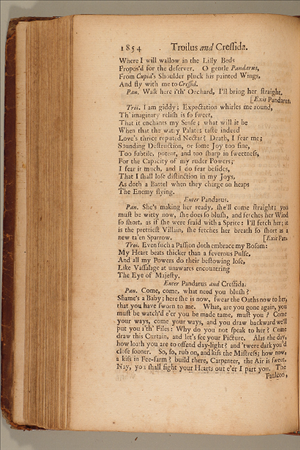 1854 Troilus and Cressida.
Where I will wallow in the Lilly Beds
Propos'd for the deserver. O gentle Pandarus,
From Cupid's Shoulder pluck his painted Wings,
And fly with me to Cressid.
Pan. Walk here i'th' Orchard, I'll bring her straight.
[Exit Pandarus.
Troi. I am giddy; Expectation whirles me round,
Th' imaginary relish is so sweet,
That it enchants my Sense; what will it be
When that the wat'ry Palats taste indeed
Love's thrice reputed Nectar? Death, I fear me;
Sounding Destruction, or some Joy too fine,
Too subtile, potent, and too sharp in sweetness,
For the Capacity of my ruder Powers;
I fear it much, and I do fear besides,
That I shall lose distinction in my Joys,
As doth a Battel when they charge on heaps
The Enemy flying.
Enter Pandarus.
Pan. She's making her ready, she'll come straight; you
must be witty now, she does so blush, and fetches her Wind
so short, as if she were fraid with a Sprite: I'll fetch her; it
is the prettiest Villain, she fetches her breath so short as a
new ta'en Sparrow. [Exit Pan.
Troi. Even such a Passion doth embrace my Bosom:
My Heart beats thicker than a feverous Pulse,
And all my Powers do their bestowing lose,
Like Vassalage at unawares encountring
The Eye of Majesty.
Enter Pandarus and Cressida.
Pan. Come, come, what need you blush?
Shame's a Baby; here she is now, swear the Oaths now to her,
that you have sworn to me. What, are you gone again, you
must be watch'd e'er you be made tame, must you? Come
your ways, come your ways, and you draw backward we'll
put you i'th' Files: Why do you not speak to her? Come
draw this Curtain, and let's see your Picture. Alas the day,
how loath you are to offend day-light? and 'twere dark you'd
close sooner. So, so, rub on, and kiss the Mistress; how now,
a kiss in Fee-farm? build there, Carpenter, the Air is sweet.
Nay, you shall fight your Hearts out e'er I part you. The
Faulcon,